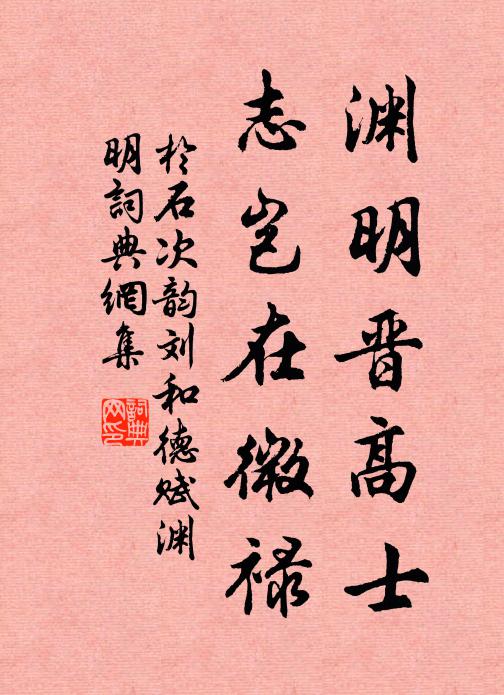 渊明晋高士
志岂在微禄
於石次韵刘和德赋渊
明詞典網集
詞典
网印